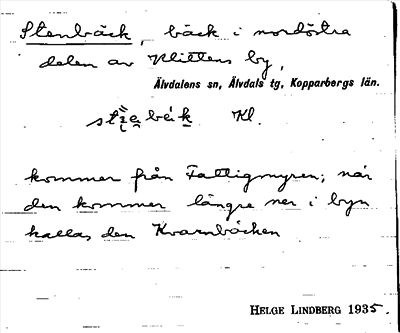 Stenbäck, bäck i nordöstra
delen av Klittens by,
Älvdalens sn, Älvdals tg, Kopparbergs län.
Kl.
kommer från Fattigmyren; när
den kommer längre ner i byn
kallas den Kvarnbäcken
HELGE LINDBERG 1935.